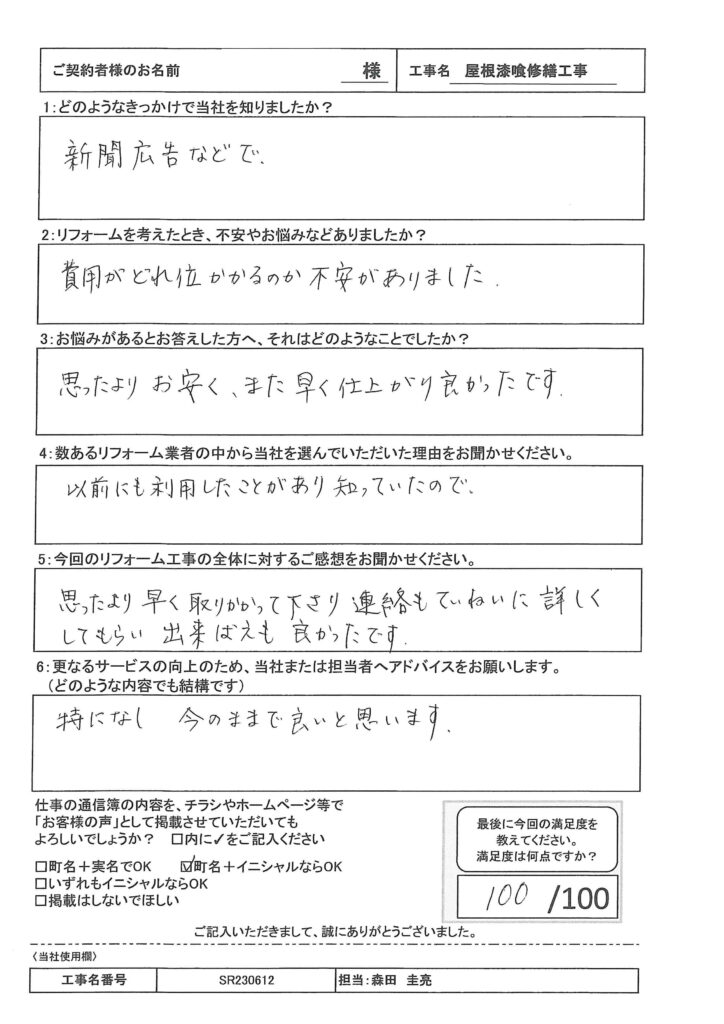 ご契約者様のお名前 様 工事名 屋根漆喰修繕工事
1:どのようなきっかけで当社を知りましたか？
新聞広告などで.
2:リフォームを考えたとき、不安やお悩みなどありましたか？
費用がどれ位かかるのか不安がありました.
3:お悩みがあるとお答えした方へ、それはどのようなことでしたか？
思ったよりお安く、また早く仕上がり良かったです.
4:数あるリフォーム業者の中から当社を選んでいただいた理由をお聞かせください。
以前にも利用したことがあり知っていたので.
5:今回のリフォーム工事の全体に対するご感想をお聞かせください。
思ったより早く取りかかって下さり連絡もていねいに詳しく
してもらい出来ばえも良かったです.
6:更なるサービスの向上のため、当社または担当者へアドバイスをお願いします。
（どのような内容でも結構です）
特になし 今のままで良いと思います.
仕事の通信簿の内容を、チラシやホームページ等で
「お客様の声」として掲載させていただいても
よろしいでしょうか？ □内に✓をご記入ください
□町名＋実名でOK ☑町名＋イニシャルならOK
□いずれもイニシャルならOK
□掲載はしないでほしい
最後に今回の満足度を
教えてください。
満足度は何点ですか？
100 /100
ご記入いただきまして、誠にありがとうございました。
〈当社使用欄〉
工事名番号 SR230612 担当:森田 圭亮